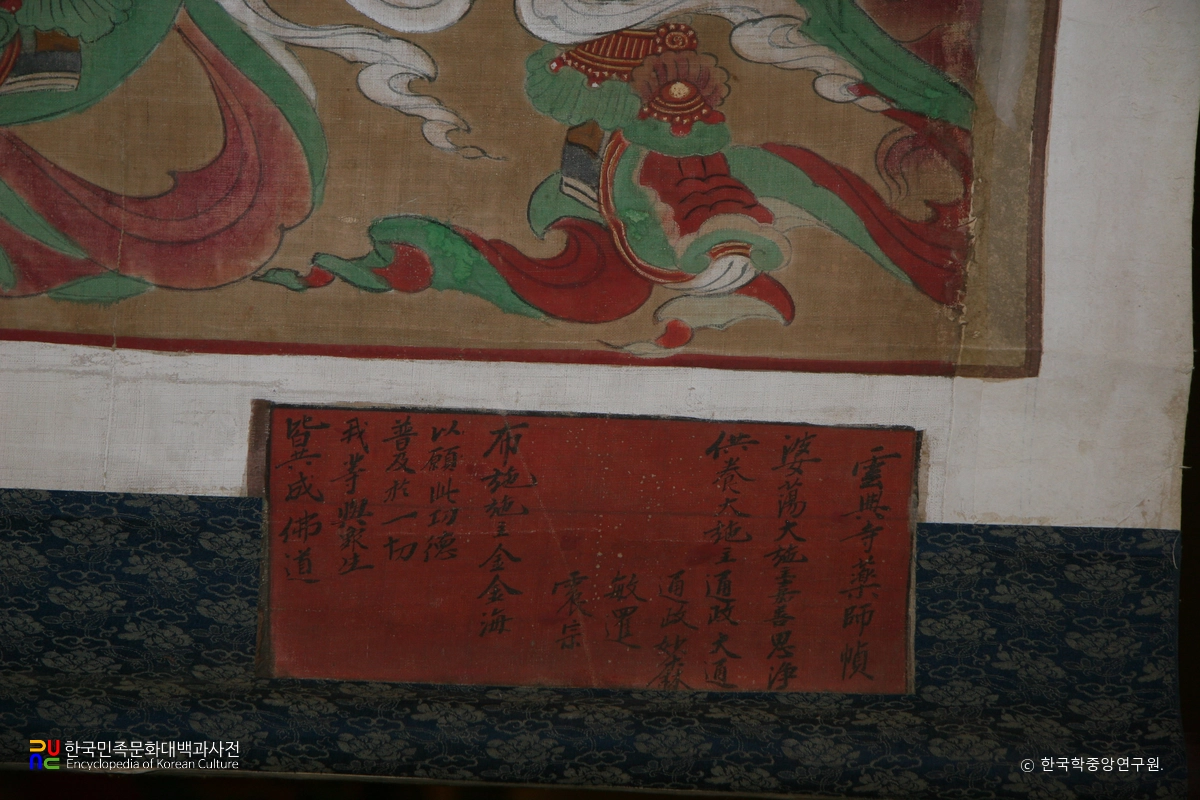 雲興寺藥師幀
婆蕩大施主嘉善思淨
供養大施主通政大通
通政
敏還
震宗
布施施主金金海
以願此功德
普及於一切
我等與衆生
皆共成佛道
한국민족문화대백과사전
Encyclopedia of Korean Culture
ⓒ 한국학중앙연구원.